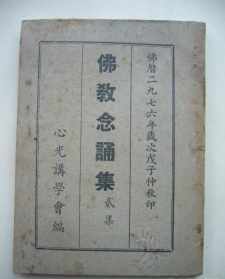 佛曆二九七六年歲次戊子仲秋印
佛教念誦集
貳集
心光講學會編